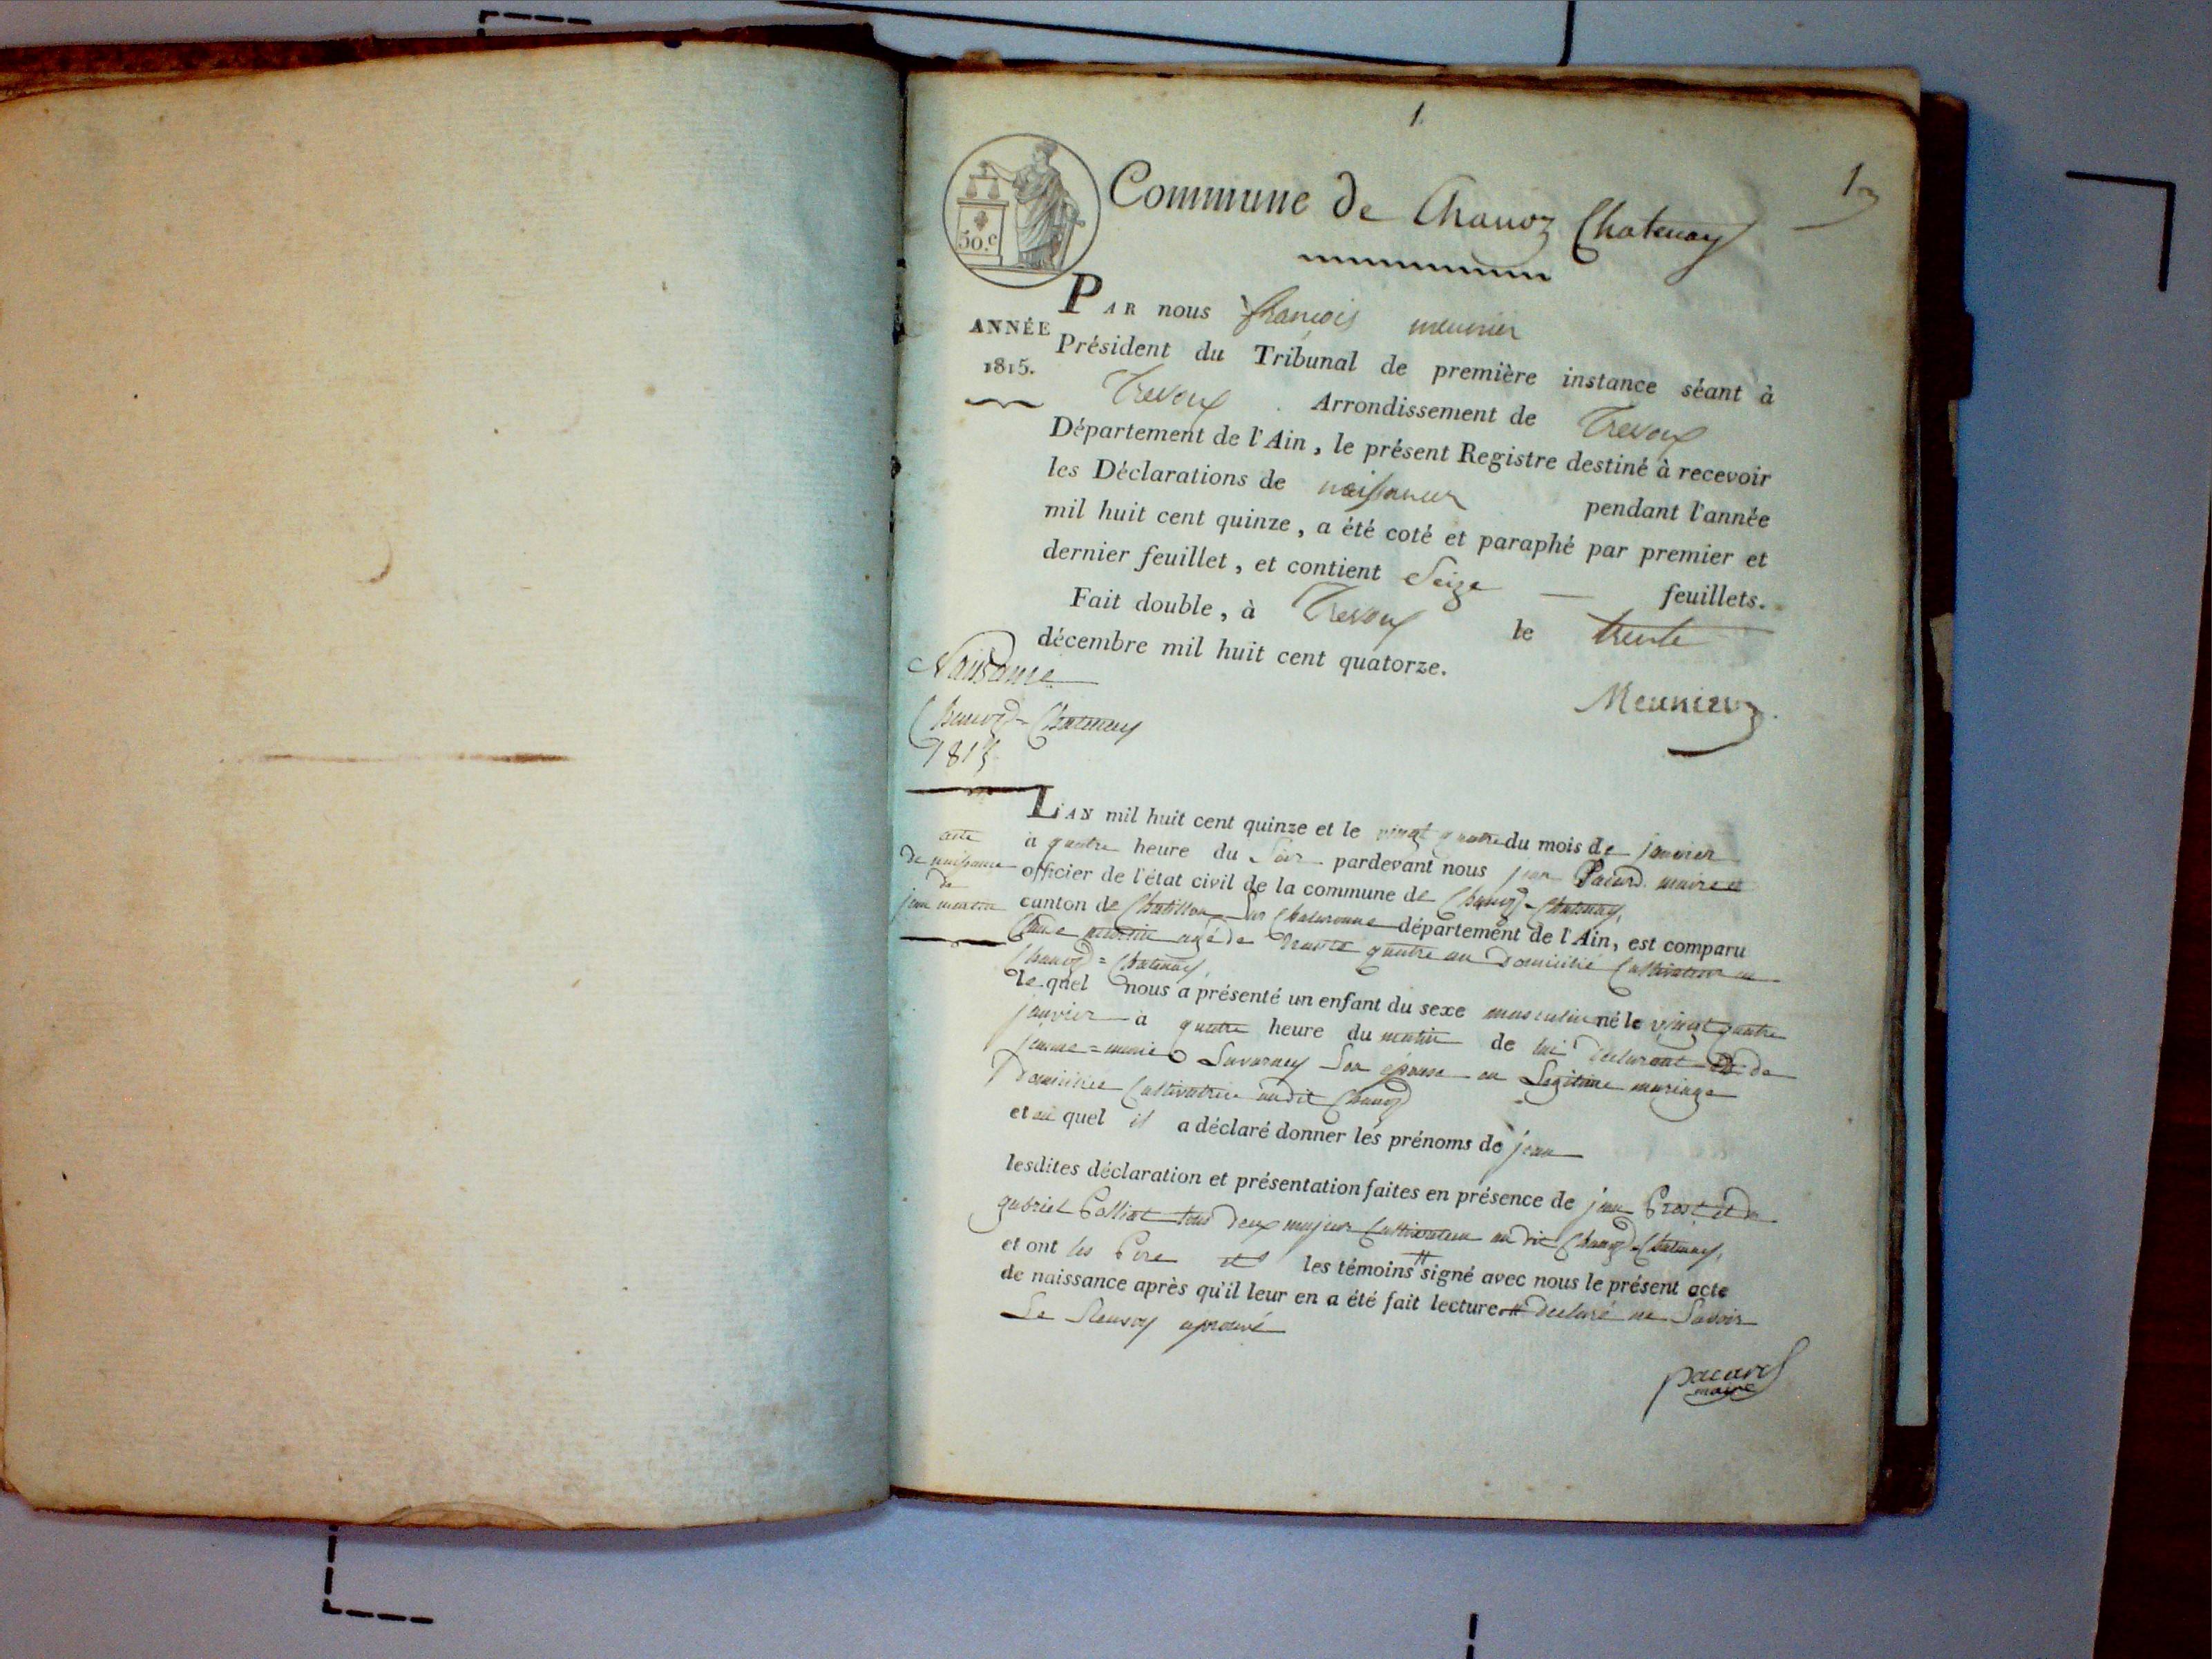 1.
1
Commune de Chanoz Chatenay
50.c
PAR nous françois meunier
ANNÉE
1815.
Président du Tribunal de première instance séant à
Trevoux Arrondissement de Trevoux
Département de l'Ain, le présent Registre destiné à recevoir
les Déclarations de naissances pendant l'année
mil huit cent quinze, a été coté et paraphé par premier et
dernier feuillet, et contient Seize — feuillets.
Fait double, à Trevoux le trente
décembre mil huit cent quatorze.
Meunier
Naissance
Chanoz-Chatenay
1815
L'AN mil huit cent quinze et le vingt quatre du mois de janvier
à quatre heure du Soir pardevant nous jean Pacard maire et
officier de l'état civil de la commune de Chanoz-Chatenay,
canton de Chatillon Sur Chalaronne département de l'Ain, est comparu
acte
de naissance
de
jean
agé de trente quatre an Domicilié Cultivateur
Chanoz=Chatenay,
le quel nous a présenté un enfant du sexe masculin né le vingt quatre
janvier à quatre heure du matin de lui déclarant et de
marie Savarney Son épouse en Legitime mariage
Domiciliée Cultivatrice audit Chanoz
et au quel il a déclaré donner les prénoms de jean
lesdites déclaration et présentation faites en présence de jean Prost et de
gabriel Polliat tous deux majeur Cultivateur audit Chanoz-Chatenay,
et ont les Pere et les témoins # signé avec nous le présent acte
de naissance après qu'il leur en a été fait lecture # declaré ne Savoir
Le Renvoy aprouvé
pacard
maire